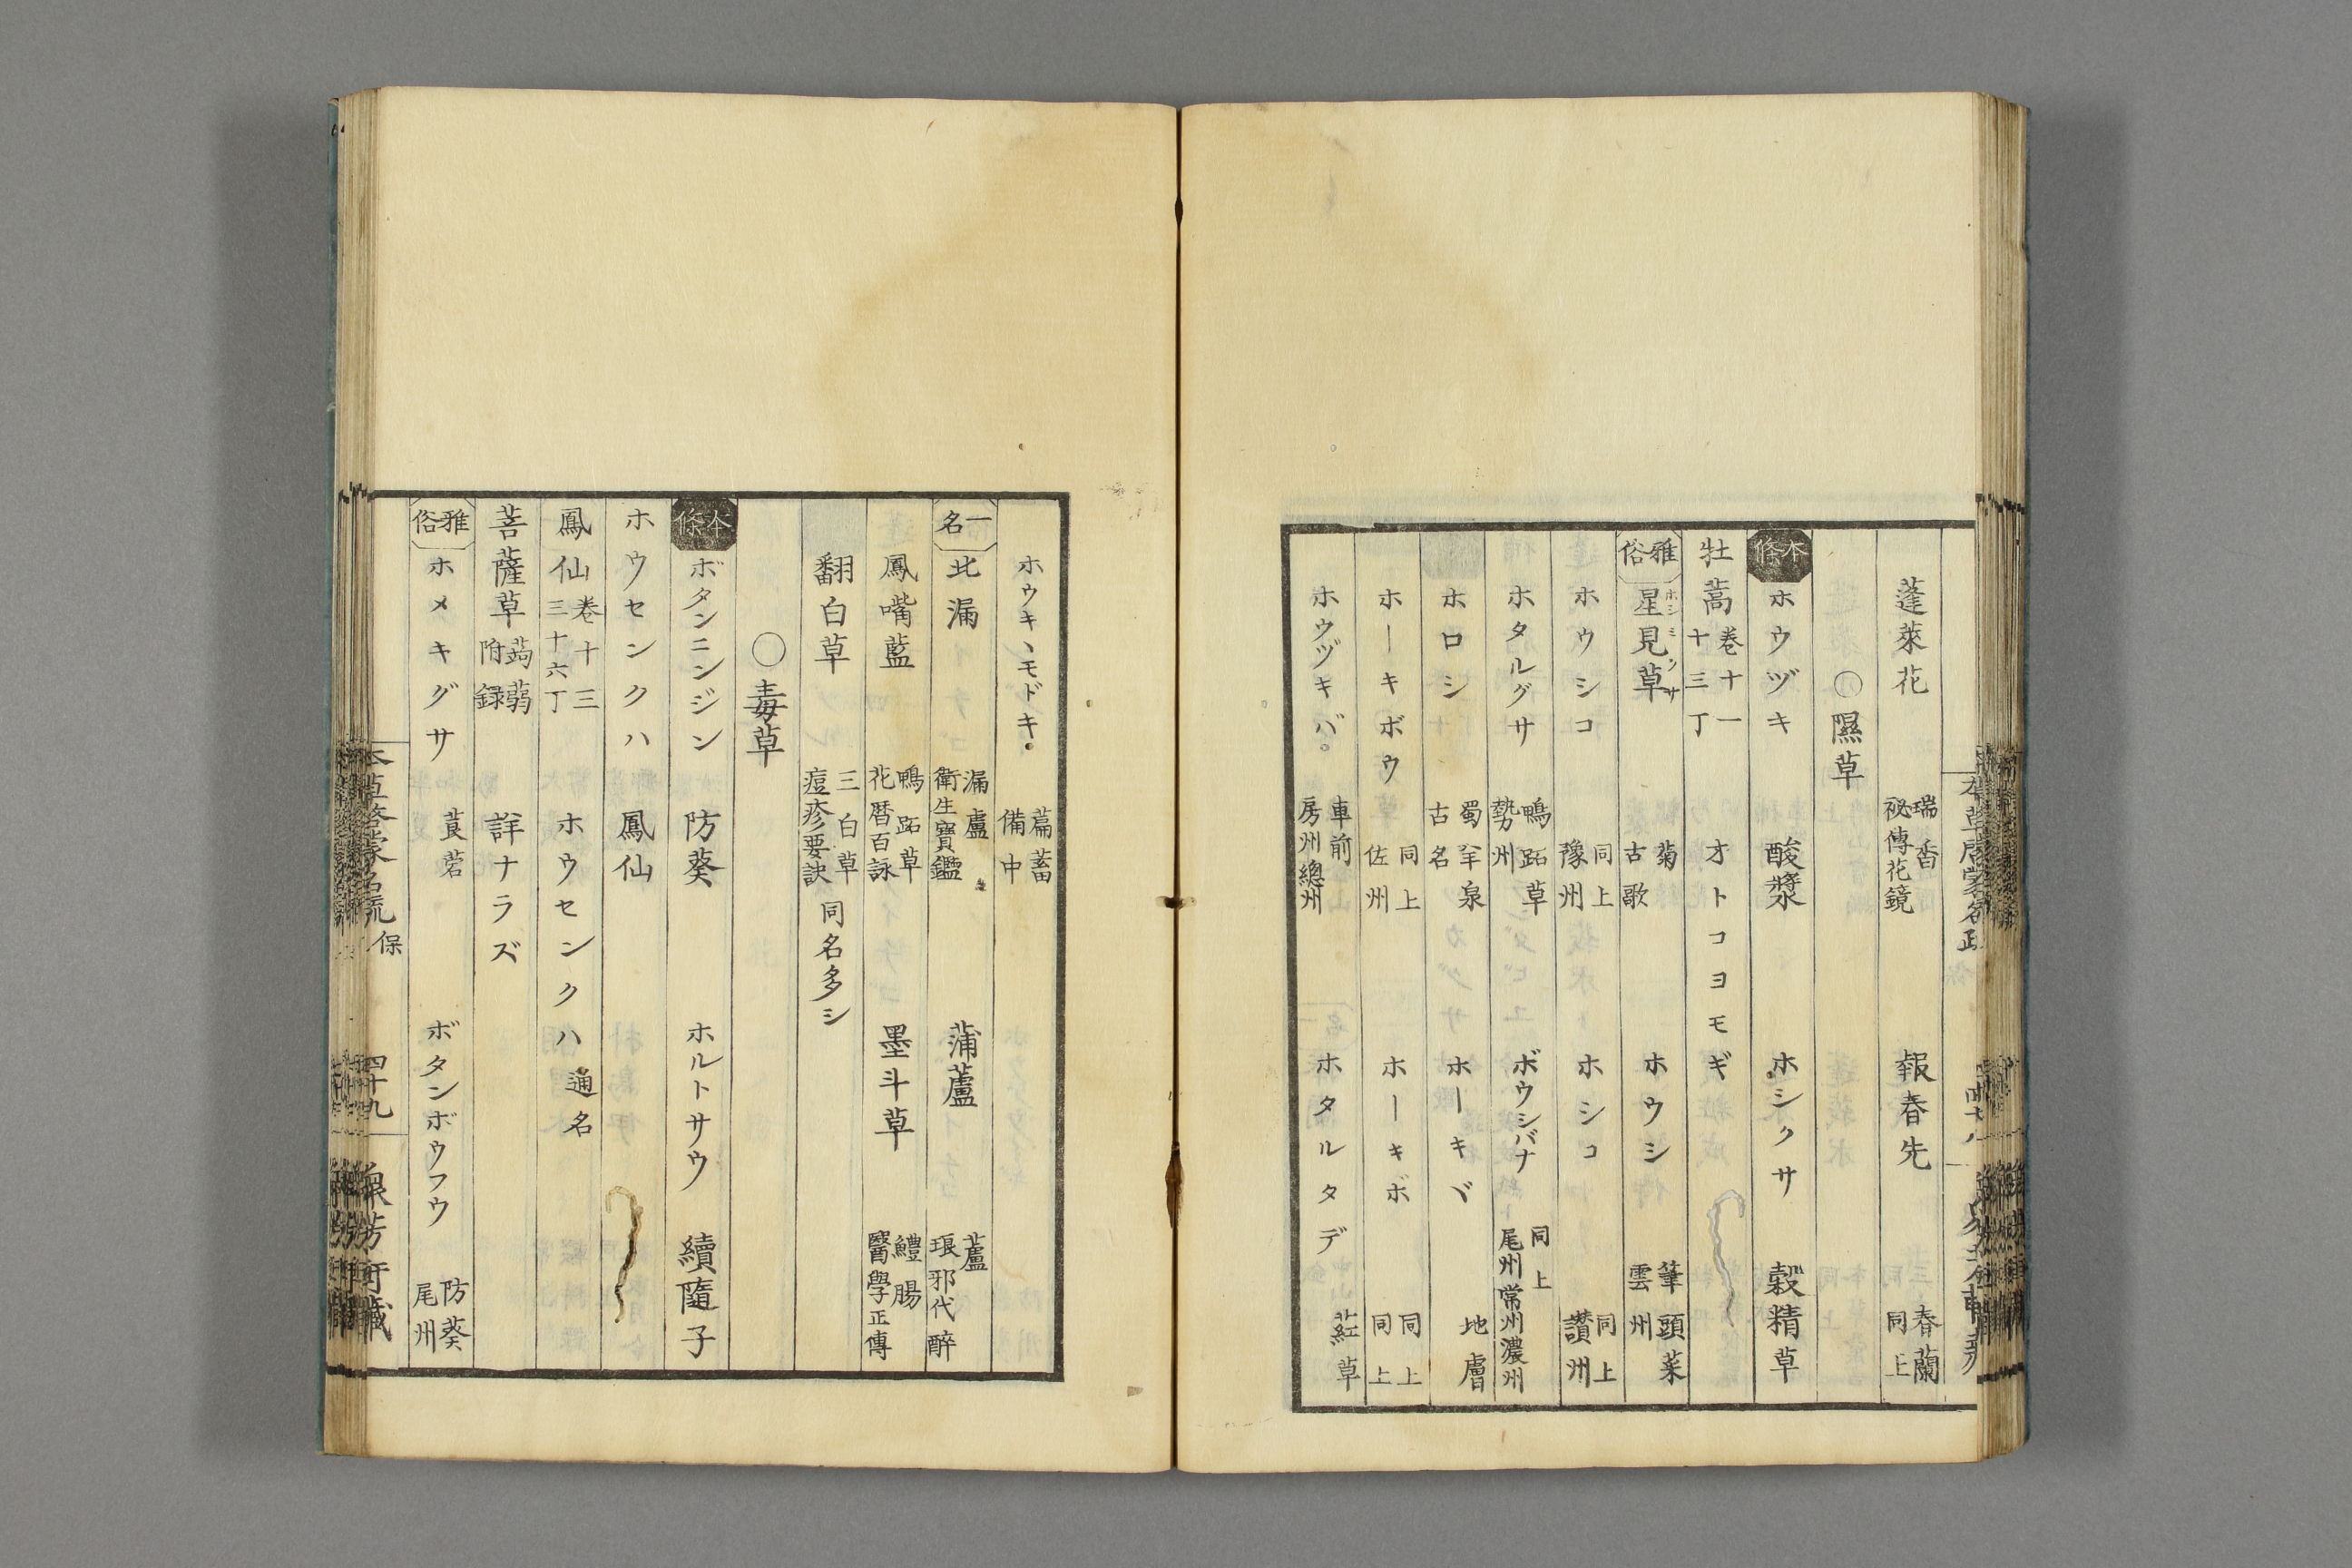 蓬萊花 瑞香 祕傳花鏡 報春先 春蘭 同上
〇隰草
本條 ホウヅキ 酸漿 ホシクサ 穀精草
牡蒿 卷十一 十三丁 オトコヨモギ
雅俗 星見草 ホシミクサ 菊 古歌 ホウシ 筆頭菜 雲州
ホウシコ 同上 豫州 ホシコ 同上 讃州
ホタルグサ 鴨跖草 勢州 ボウシバナ 同上 尾州常州濃州
ホロシ 蜀羊泉 古名 ホーキヾ 地膚
ホーキボウ 同上 佐州 ホーキボ 同上 同上
ホウヅキバ。 車前 房州總州 ホタルタデ 葒草
ホウキヽモドキ。 萹蓄 備中
一名 北漏 漏盧 衛生寶鑑 蒲蘆 蘆 琅邪代醉
鳳嘴藍 鴨跖草 花暦百詠 墨斗草 鱧腸 醫學正傳
翻白草 三白草 痘疹要訣 同名多シ
〇毒草
本條 ボタンニンジン 防葵 ホルトサウ 續隨子
ホウセンクハ 鳳仙
鳳仙 卷十三 三十六丁 ホウセンクハ 通名
菩薩草 蒟蒻附録 詳ナラズ
雅俗 ホメキグサ 莨菪 ボタンボウフウ 防葵 尾州
本草啓蒙名疏 保 四十九